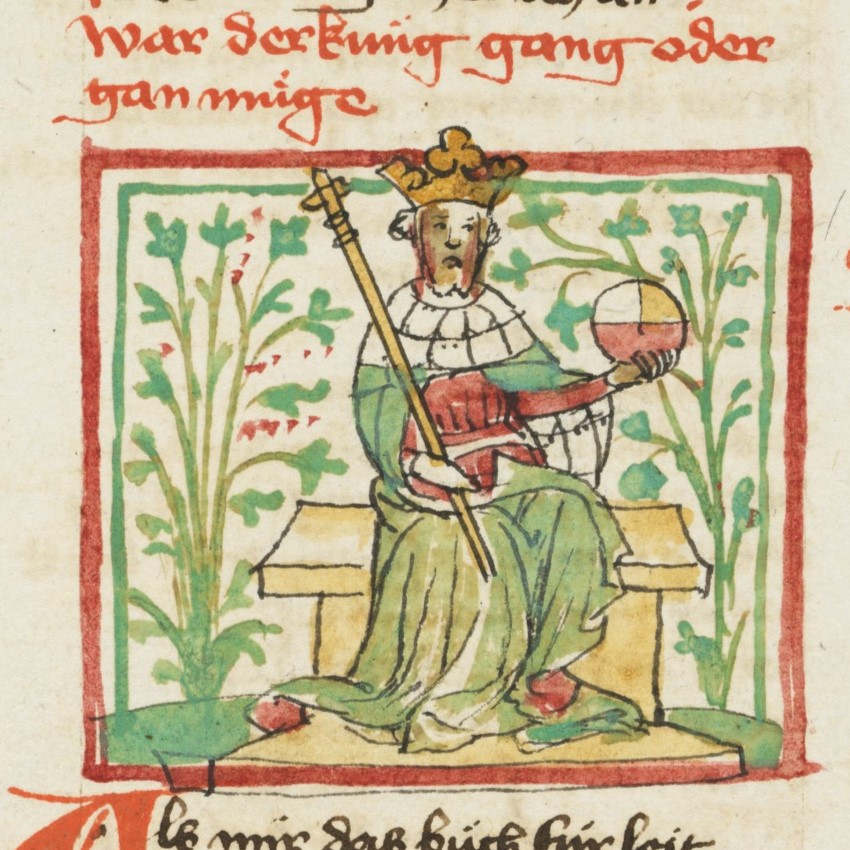 war der kunig gang oder
gan muge
Als mir das buch fur leit